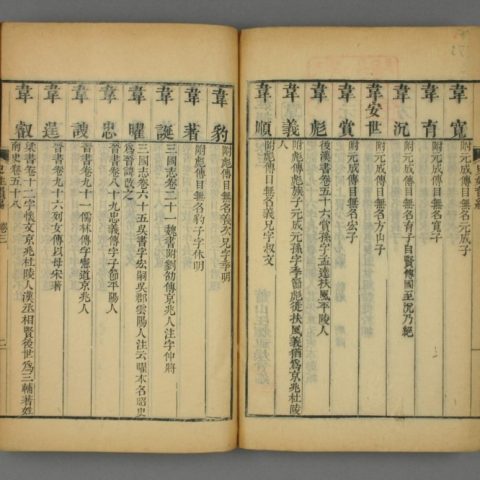 韋寬 附元成傳目無名元成子
韋育 附元成傳目無名寬子
韋沉 附元成傳目無名育子自賢傳國至沉乃絕
韋安世 附元成傳目無名方山子
韋賞 附元成傳目無名宏子
韋彪 後漢書卷五十六賞孫字孟達扶風平陵人
韋義 附彪傳目無名子元成孫字季節彪徙扶風義猶爲京兆杜陵人
韋順 附彪傳目無名義兄字叔文
韋豹 附彪傳目無名義次兄字季明
韋著 附彪傳目無名豹子字休明
韋誕 三國志卷二十一魏書附劉劭傳京兆人注字仲將
韋曜 三國志卷六十五吳書字宏嗣吳郡雲陽人注云曜本名昭史
爲晉諱改之
韋忠 晉書卷八十九忠義傳字子節平陽人
韋謏 晉書卷九十一儒林傳字憲道京兆人
韋逞 晉書卷九十六列女傳以母宋著
韋叡 梁書卷十二字懷文京兆杜陵人漢丞相賢後世爲三輔著姓
南史卷五十八